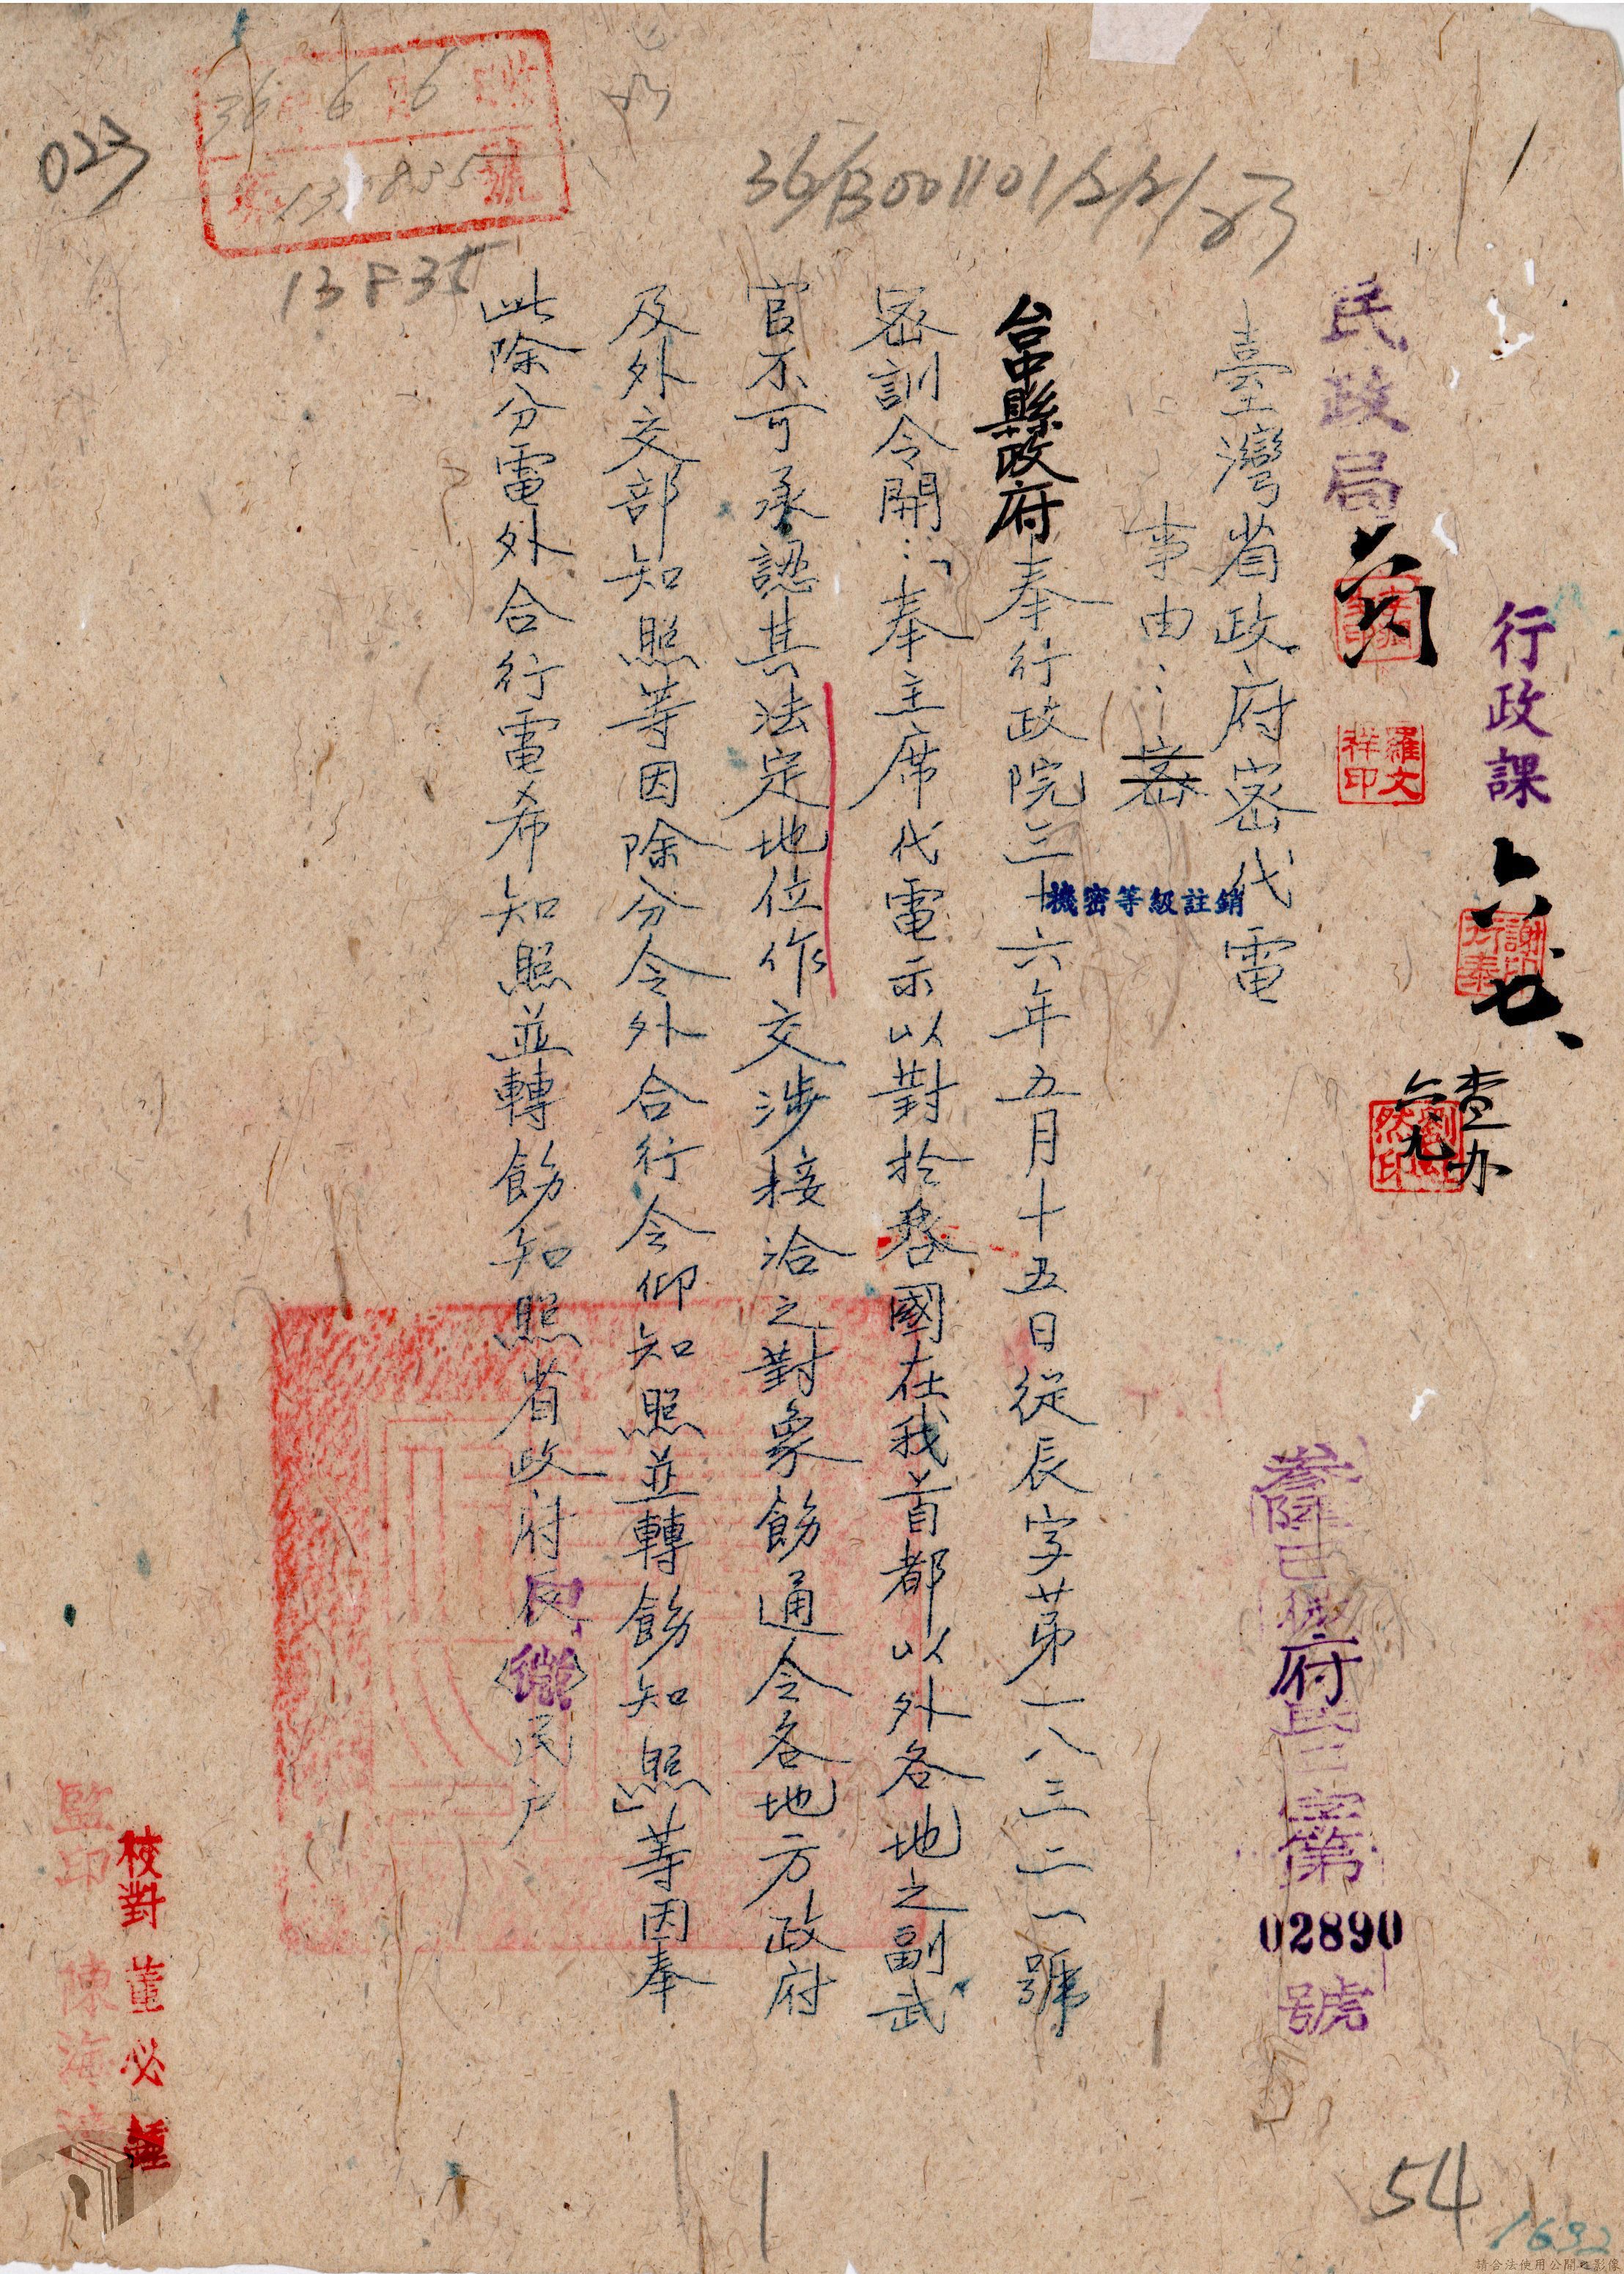 行政課
查办
民政局
羅文祥印
臺灣省政府密代電
叁陸已 府民已字第
02890
號
事由：密
機密等級註銷
台中縣政府奉行政院三十六年五月十五日從辰字第一八三二一號
密訓令開：「奉主席代電示以對於各國在我首都以外各地之副武
官不可承認其法定地位作交涉接洽之對象飭通令各地方政府
及外交部知照等因除分令外合行令仰知照並轉飭知照」等因奉
此除分電外合行電希知照並轉飭知照省政府 民戶
36 6 6
收
號
13835
36/B001101/2/2/23
023
校對 董必鍾
監印 陳海
54
1632
請合法使用公開之影像